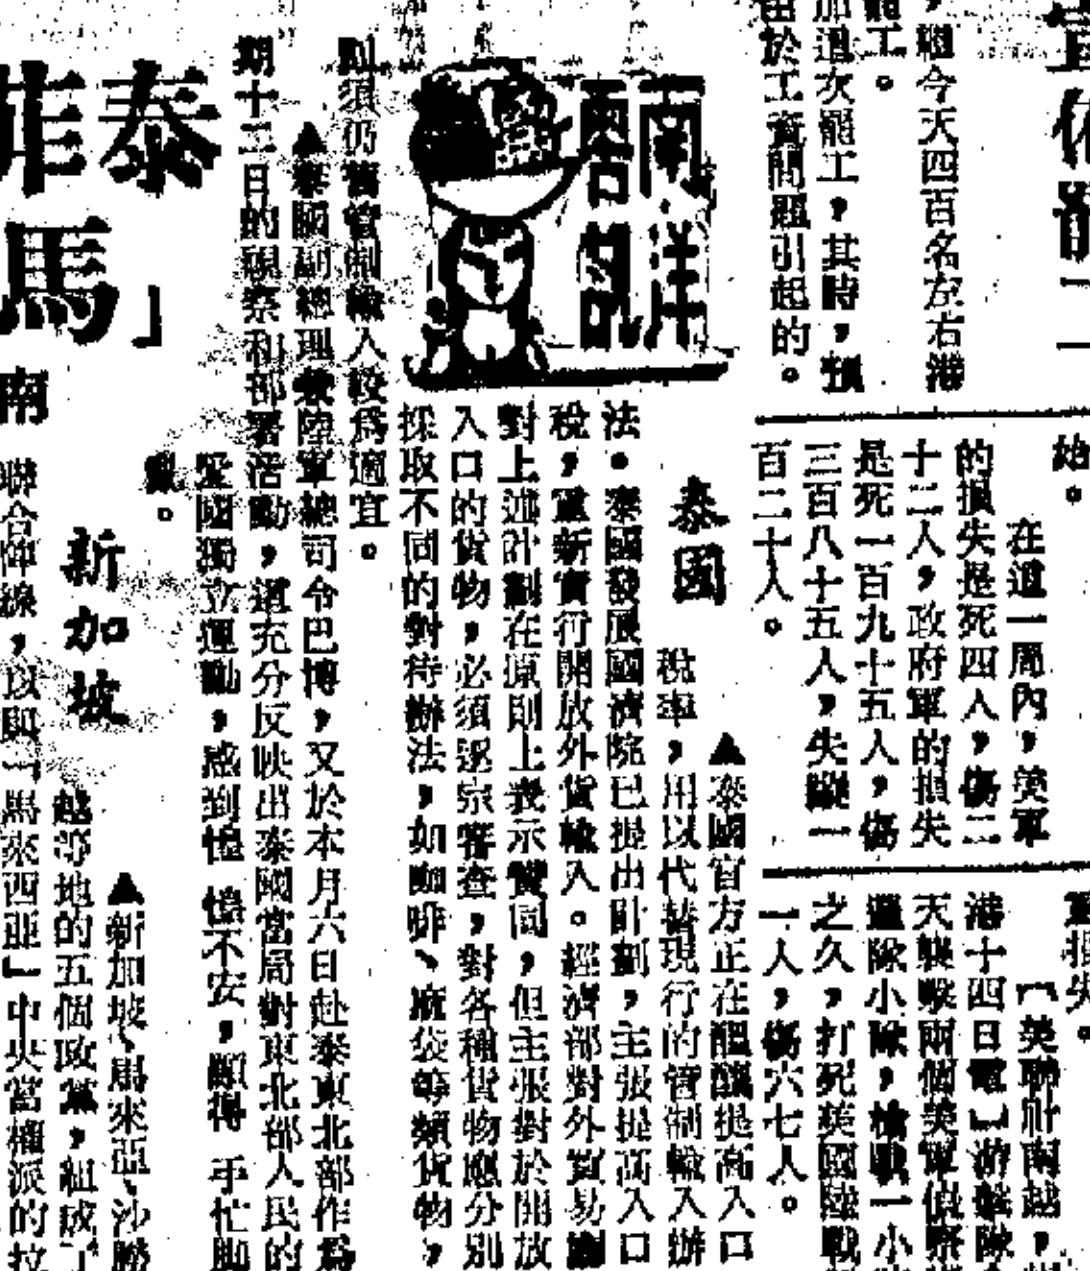 ，繼今天四百名左右港
罷工。
加這次罷工，其時，預
由於工資問題引起的。
始。
在這一周內，美軍
的損失是死四人，傷二
十二人，政府軍的損失
是死一百九十五人，傷
三百八十五人，失蹤一
百二十人。
損失。
【美聯社南越，
港十四日電】游擊隊
天襲擊兩個美軍偵察
邏隊小隊，槍戰一小
之久，打死美國陸戰
一人，傷六七人。
南洋
點
泰國
▲泰國官方正在醞釀提高入口
稅率，用以代替現行的管制輸入辦
法。泰國發展國濟院已提出計劃，主張提高入口
稅，重新實行開放外貨輸入。經濟部對外貿易
對上述計劃在原則上表示贊同，但主張對於開放
入口的貨物，必須逐宗審查，對各種貨物應分別
採取不同的對待辦法，如咖啡、麻袋等類貨物，
則須仍舊管制輸入較爲適宜。
▲泰國副總理兼陸軍總司令巴博，又於本月六日赴泰東北部作爲
期十二日的視察和部署活動，這充分反映出泰國當局對東北部人民的
愛國獨立運動，感到惶惶不安，顯得手忙腳
亂。
新加坡
▲新加坡、馬來亞、沙勝
越等地的五個政黨，組成了
聯合陣線，以與「馬來西亞」中央當權派的
泰
馬」
南